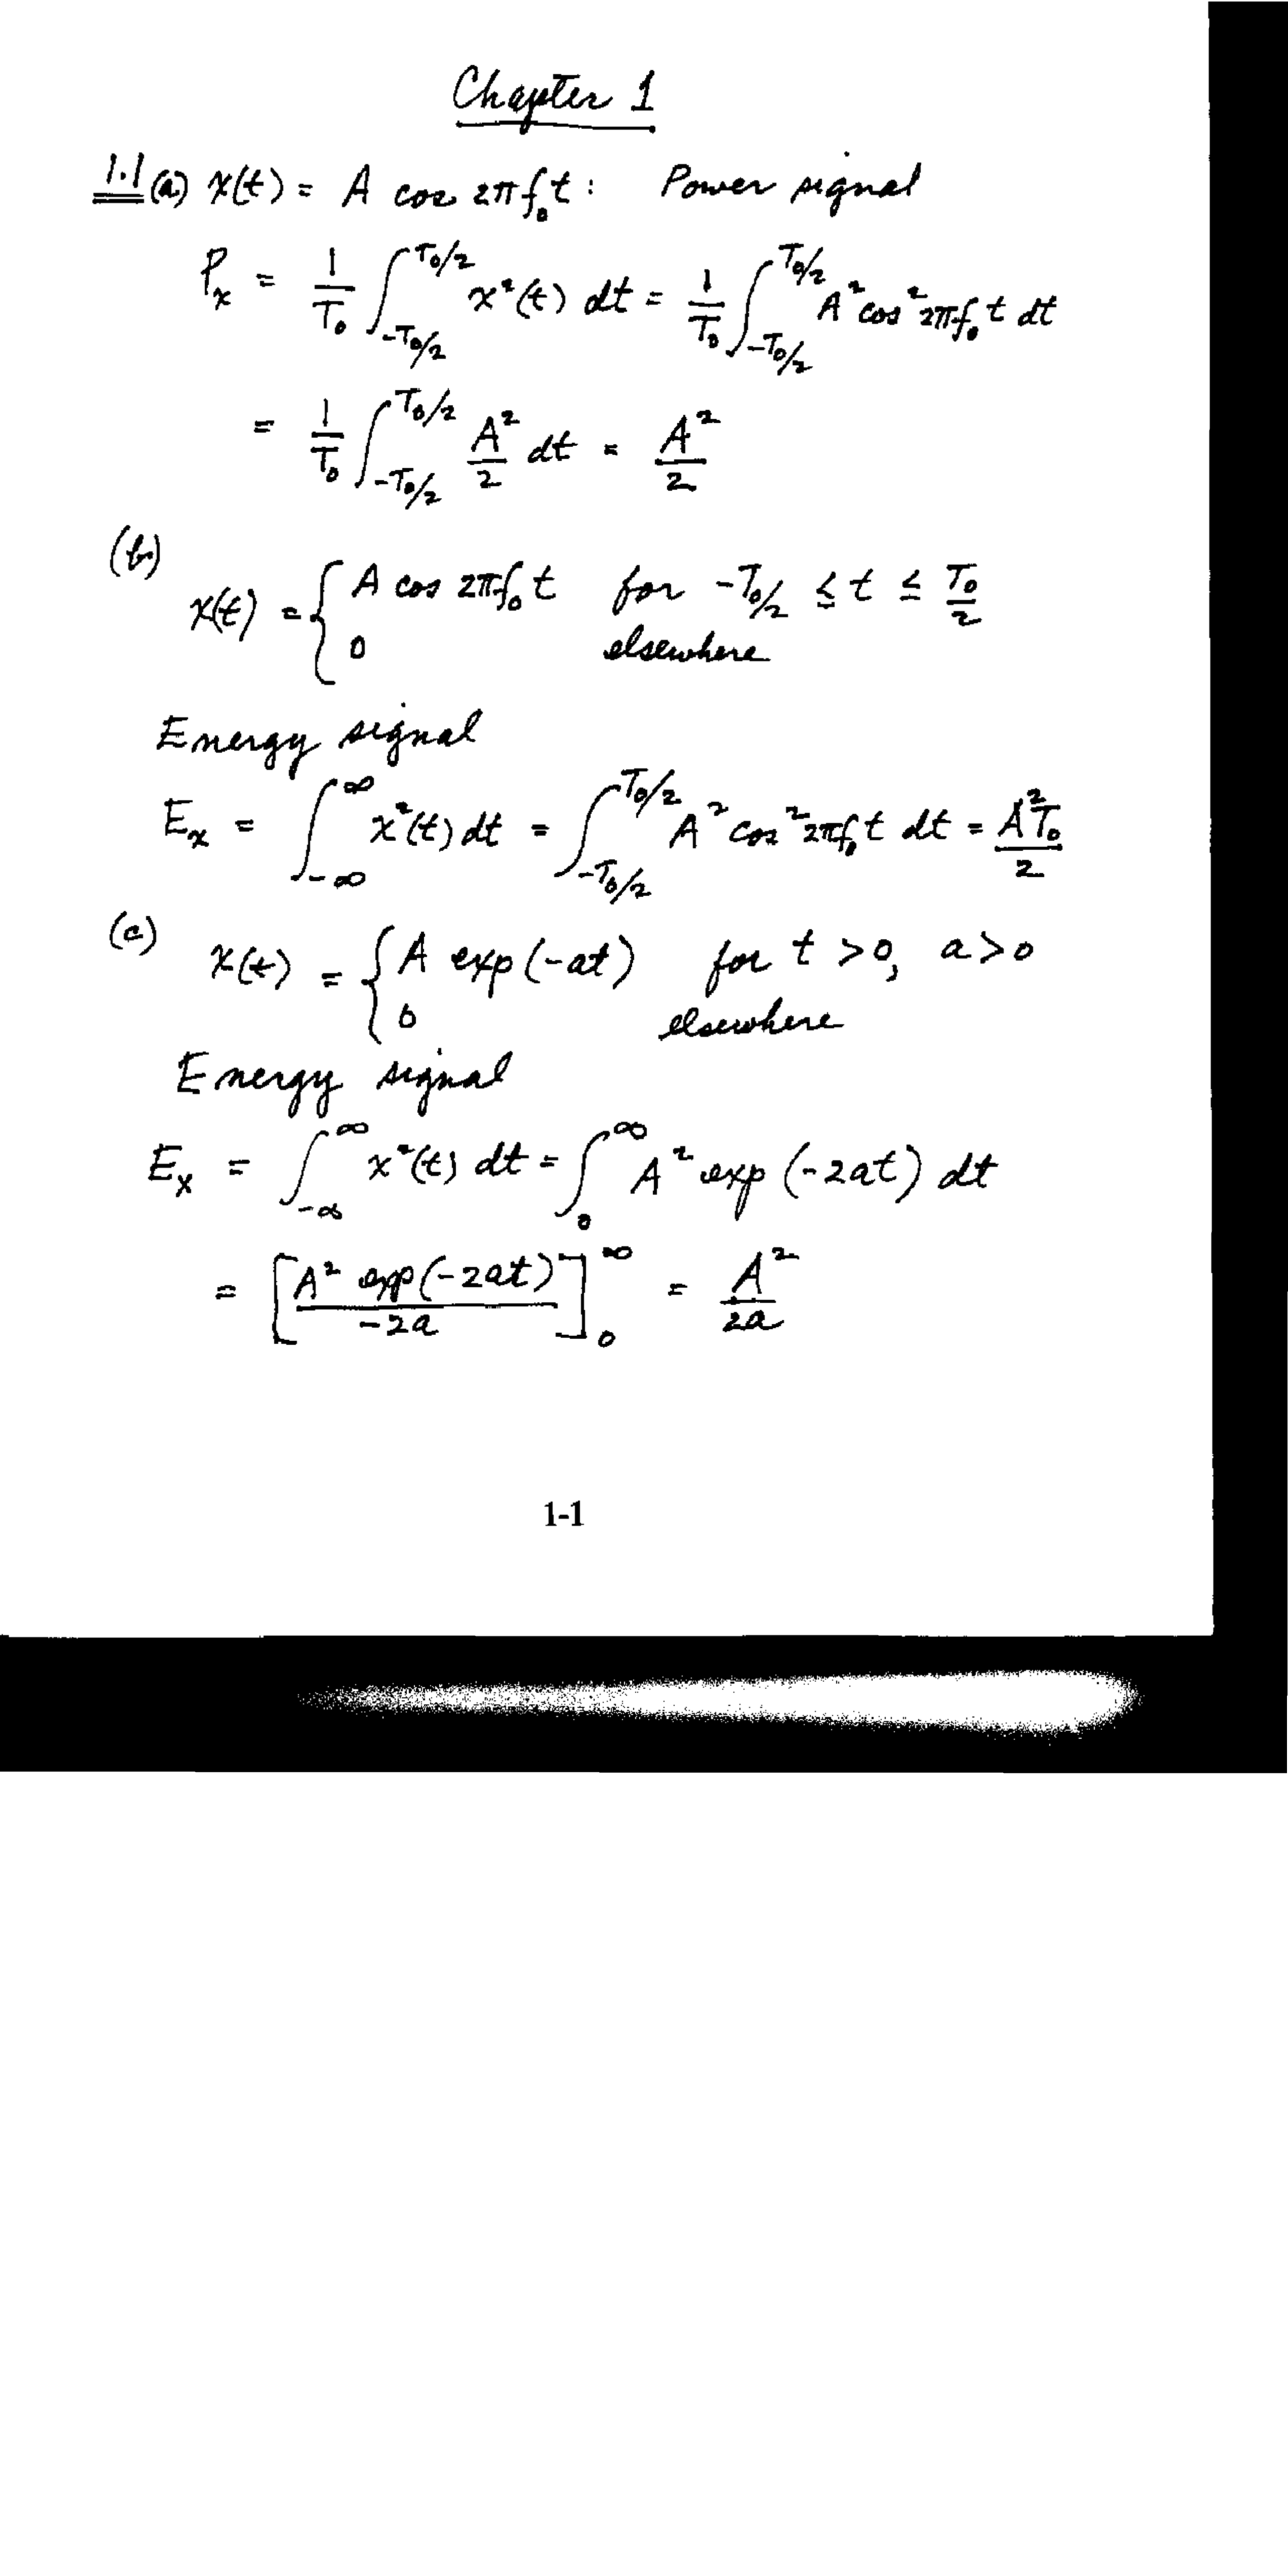 Chapter 1
1.1 (a) x(t) = A cos 2πf₀t : Power signal
Pₓ = 1/T₀ ∫_{-T₀/2}^{T₀/2} x²(t) dt = 1/T₀ ∫_{-T₀/2}^{T₀/2} A² cos² 2πf₀t dt
= 1/T₀ ∫_{-T₀/2}^{T₀/2} A²/2 dt = A²/2
(b)
x(t) = { A cos 2πf₀t for -T₀/2 ≤ t ≤ T₀/2
0 elsewhere
Energy signal
Eₓ = ∫_{-∞}^{∞} x²(t) dt = ∫_{-T₀/2}^{T₀/2} A² cos² 2πf₀t dt = A²T₀/2
(c)
x(t) = { A exp(-at) for t > 0, a > 0
0 elsewhere
Energy signal
Eₓ = ∫_{-∞}^{∞} x²(t) dt = ∫_{0}^{∞} A² exp(-2at) dt
= [A² exp(-2at)/-2a]_{0}^{∞} = A²/2a
1-1